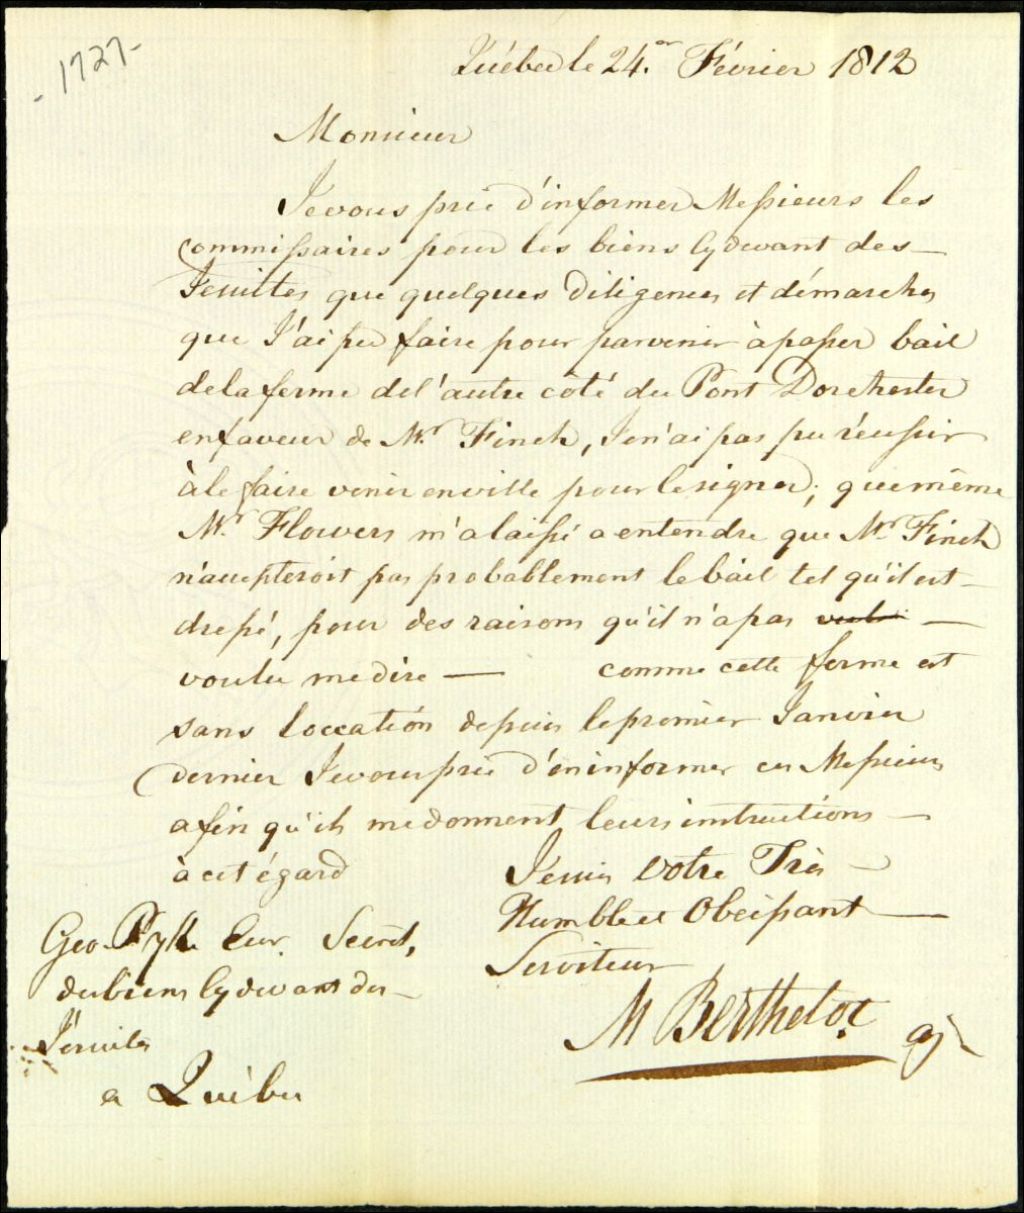 1727-
Québec le 24.er Février 1812
Monsieur
Je vous prie d'informer Messieurs les
commissaires pour les biens cy devant des
Jesuittes que quelques diligences et démarches
que J'ai pu faire pour parvenir à passer bail
de la ferme de l'autre côté du Pont Dorchester
en faveur de Mr. Finch, Je n'ai pas pu réussir
à le faire venir en ville pour le signer; que même
Mr. Flowers m'a laissé a entendre que Mr. Finch
n'accepteroit pas probablement le bail tel qu'il est
dressé, pour des raisons qu'il n'a pas
voulu me dire — comme cette ferme est
sans loccation depuis le premier Janvier
dernier Je vous prie d'en informer ces Messieurs
afin qu'ils me donnent leurs instructions
à cet égard
Je suis Votre Très
Humble et Obéissant
Serviteur
M Berthelot
Geo. Pyke Eur. Secret,
des biens cy devant des
Jésuites
a Québec